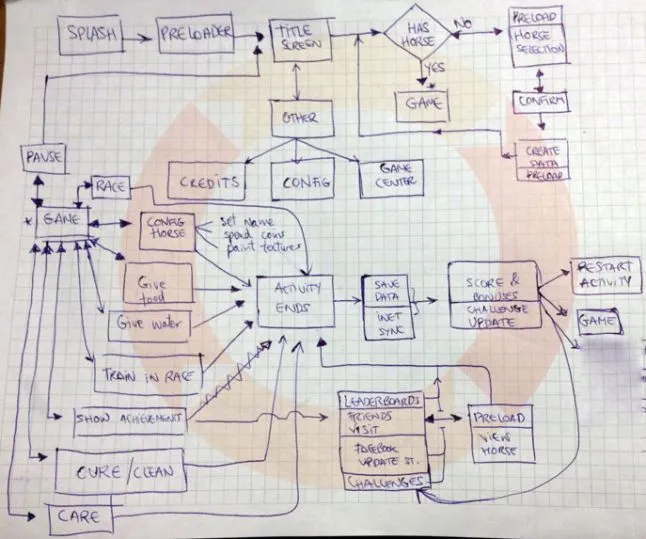 SPLASH
PRELOADER
TITLE
SCREEN
HAS
HORSE
NO
YES
PRELOAD
HORSE
SELECTION
CONFIRM
CREATE
DATA
PRELOAD
*
GAME
OTHER
CREDITS
CONFIG
GAME
CENTER
PAUSE
RACE
* GAME
CONFIG
HORSE
set Name
spend coins
paint textures
Give
food
Give water
TRAIN IN RACE
SHOW ACHIEVEMENT
CURE/CLEAN
CARE
ACTIVITY
ENDS
SAVE
DATA
INET
SYNC
SCORE &
BONUSES
CHALLENGE
UPDATE
RESTART
ACTIVITY
GAME
LEADERBOARDS
FRIENDS
VISIT
FACEBOOK
UPDATE ST.
CHALLENGES
PRELOAD
VIEW
HORSE